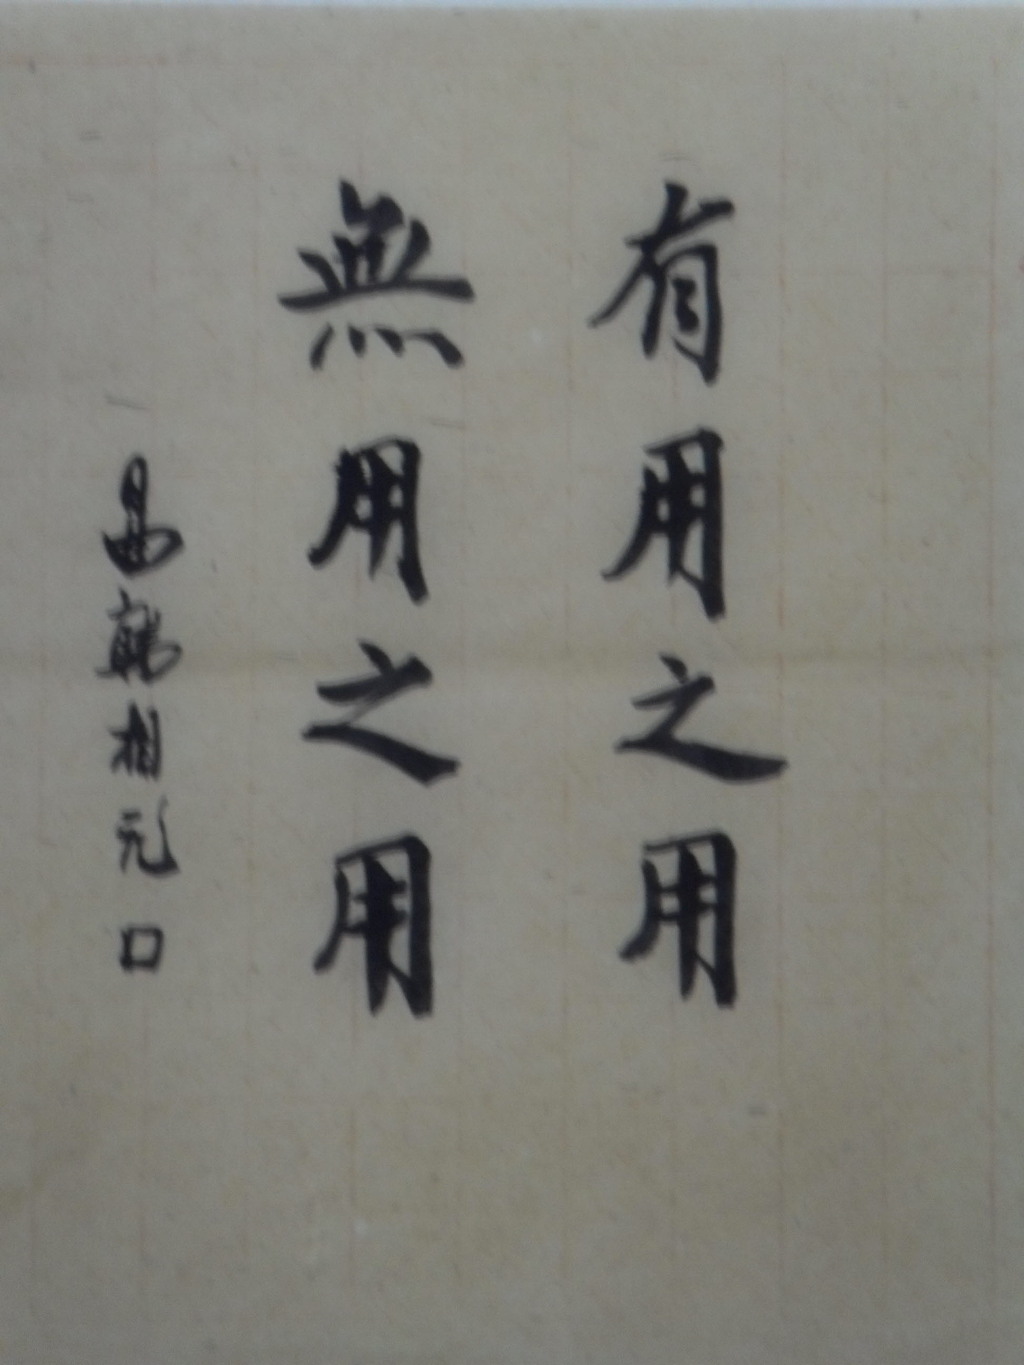 有用之用
無用之用
相元